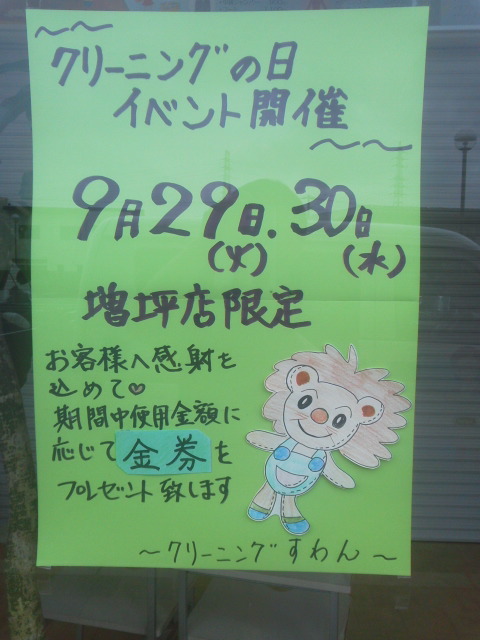 ～～
クリーニングの日
イベント開催
～～
9月29日.30日
(火) (水)
増坪店限定
お客様へ感射を
込めて♡
期間中使用金額に
応じて金券を
プレゼント致します
～クリーニングすわん～